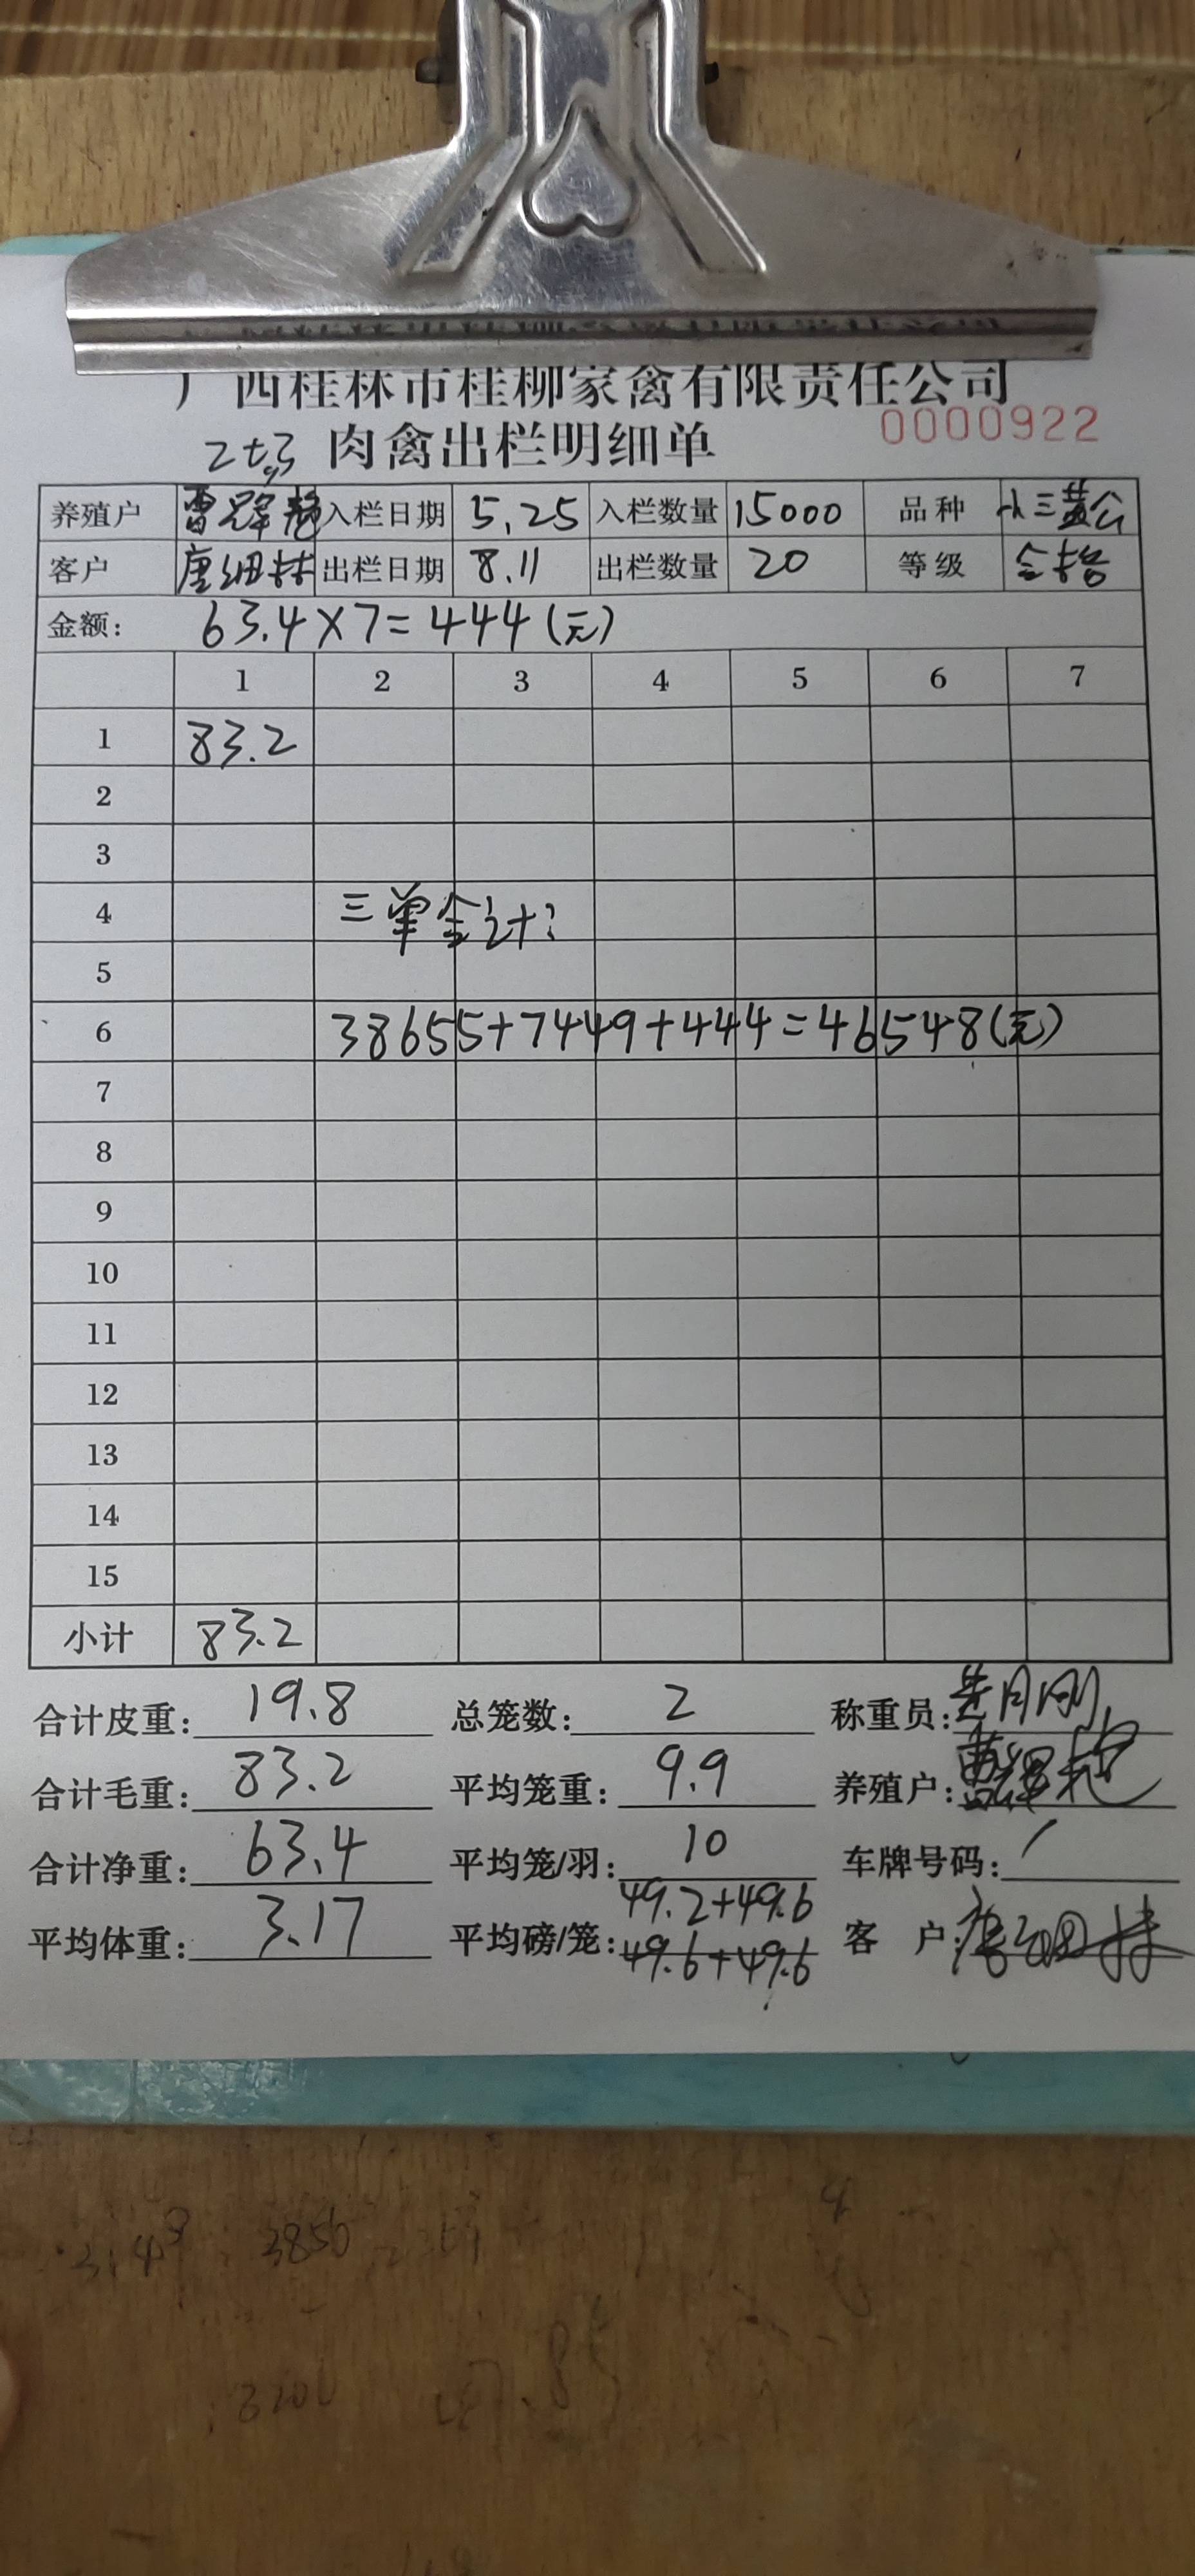 广西桂林市桂柳家禽有限责任公司
0000922
肉禽出栏明细单
养殖户 入栏日期 5.25 入栏数量 15000 品种 小三黄公
客户 唐细林 出栏日期 8.11 出栏数量 20 等级 合格
金额: 63.4×7=444(元)
1 2 3 4 5 6 7
1 83.2
2
3
4 三单合计:
5
6 38655+7449+444=46548(元)
7
8
9
10
11
12
13
14
15
小计 83.2
合计皮重: 19.8 总笼数: 2 称重员:
合计毛重: 83.2 平均笼重: 9.9 养殖户:
合计净重: 63.4 平均笼/羽: 10 车牌号码: /
平均体重: 3.17 平均磅/笼: 49.2+49.6 客户: 唐细林
49.6+49.6